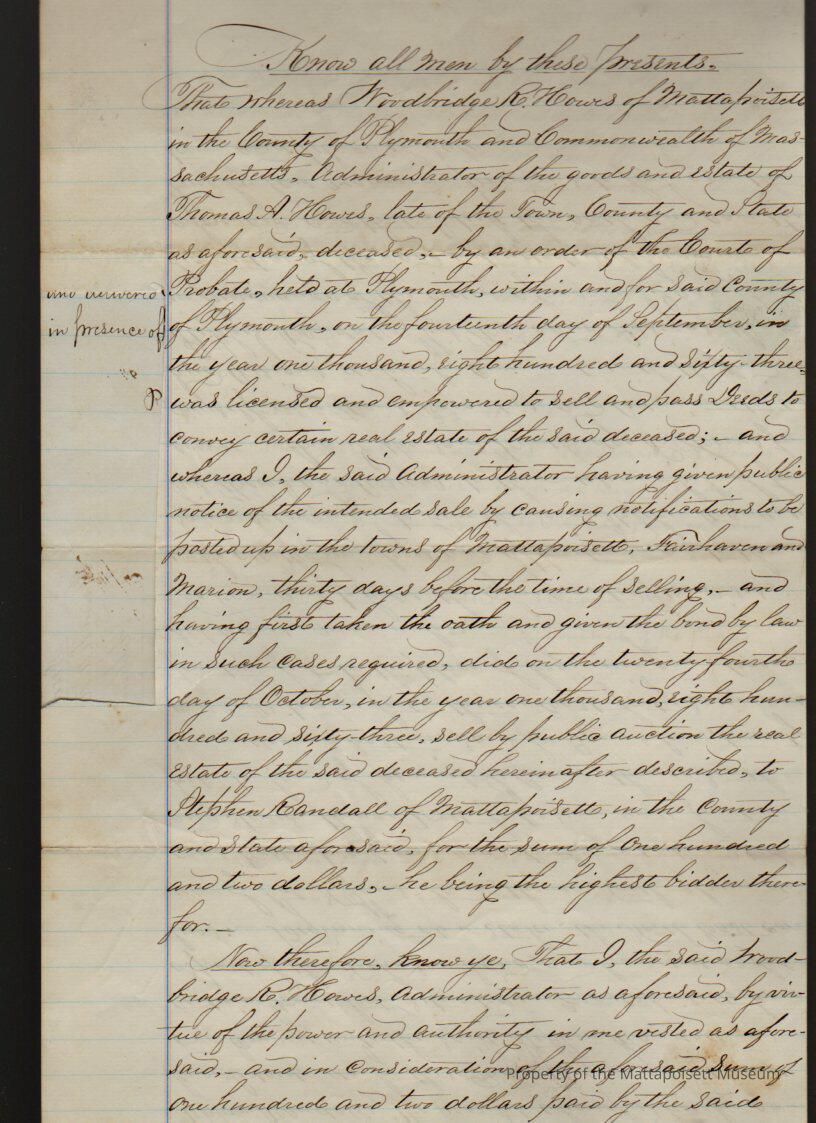 Know all men by these presents.
That whereas Woodbridge R. Howes of Mattapoisett
in the County of Plymouth and Commonwealth of Mas-
sachusetts, Administrator of the goods and estate of
Thomas A. Howes, late of the Town, County and State
as aforesaid, deceased, – by an order of the Court of
Probate, held at Plymouth, within and for said County
of Plymouth, on the fourteenth day of September, in
the year one thousand, eight hundred and sixty-three,
was licensed and empowered to sell and pass Deeds to
convey certain real estate of the said deceased; – and
whereas I, the said Administrator having given public
notice of the intended sale by causing notifications to be
posted up in the towns of Mattapoisett, Fairhaven and
Marion, thirty days before the time of selling, – and
having first taken the oath and given the bond by law
in such cases required, did on the twenty fourth
day of October, in the year one thousand, eight hun-
dred and sixty-three, sell by public auction the real
estate of the said deceased hereinafter described, to
Stephen Randall of Mattapoisett, in the County
and State aforesaid, for the sum of one hundred
and two dollars, – he being the highest bidder there-
for. –
Now therefore, know ye, That I, the said Wood-
bridge R. Howes, Administrator as aforesaid, by vir-
tue of the power and authority in me vested as afore-
said, – and in consideration of the aforesaid sum of
one hundred and two dollars paid by the said
and delivered
in presence of
P
Property of the Mattapoisett Museum